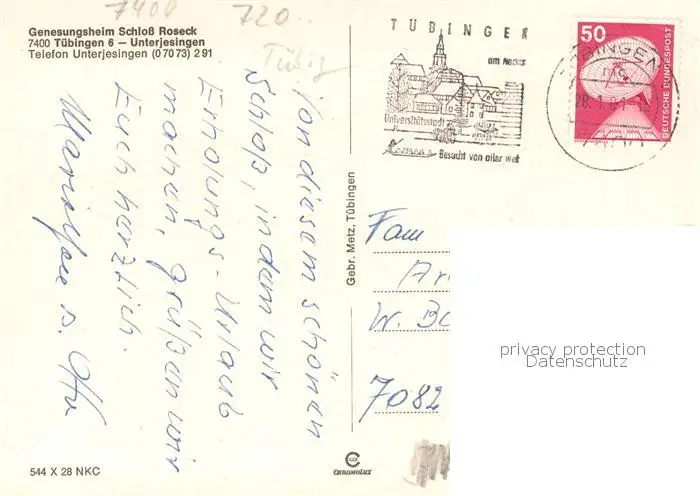 7400
720..
Tübing
Genesungsheim Schloß Roseck
7400 Tübingen 6 — Unterjesingen
Telefon Unterjesingen (0 70 73) 2 91
Von diesem schönen
Schloß, in dem wir
Erholungs-Urlaub
machen, grüßen wir
Euch herzlich.
u. Otto
544 X 28 NKC
Gebr. Metz, Tübingen
CHROMOLUX
TÜBINGEN
am Neckar
Universitätsstadt
Besucht von aller Welt
50
DEUTSCHE BUNDESPOST
BINGEN
Fam
Ar
W. Bo
7082
privacy protection
Datenschutz